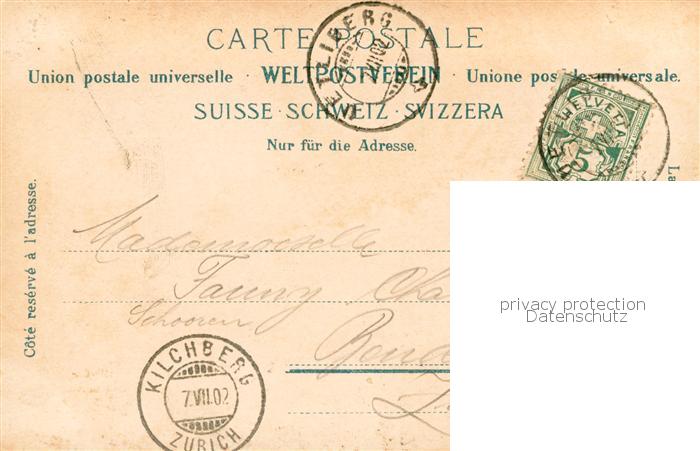 CARTE POSTALE
Union postale universelle · WELTPOSTVEREIN · Unione postale universale.
SUISSE · SCHWEIZ · SVIZZERA
Nur für die Adresse.
Côté resérvé à l'adresse.
La
UETLIBERG
VII 02
HELVETIA
5
Mademoiselle
Fanny
Schooren
KILCHBERG
7.VII.02
ZÜRICH
privacy protection
Datenschutz